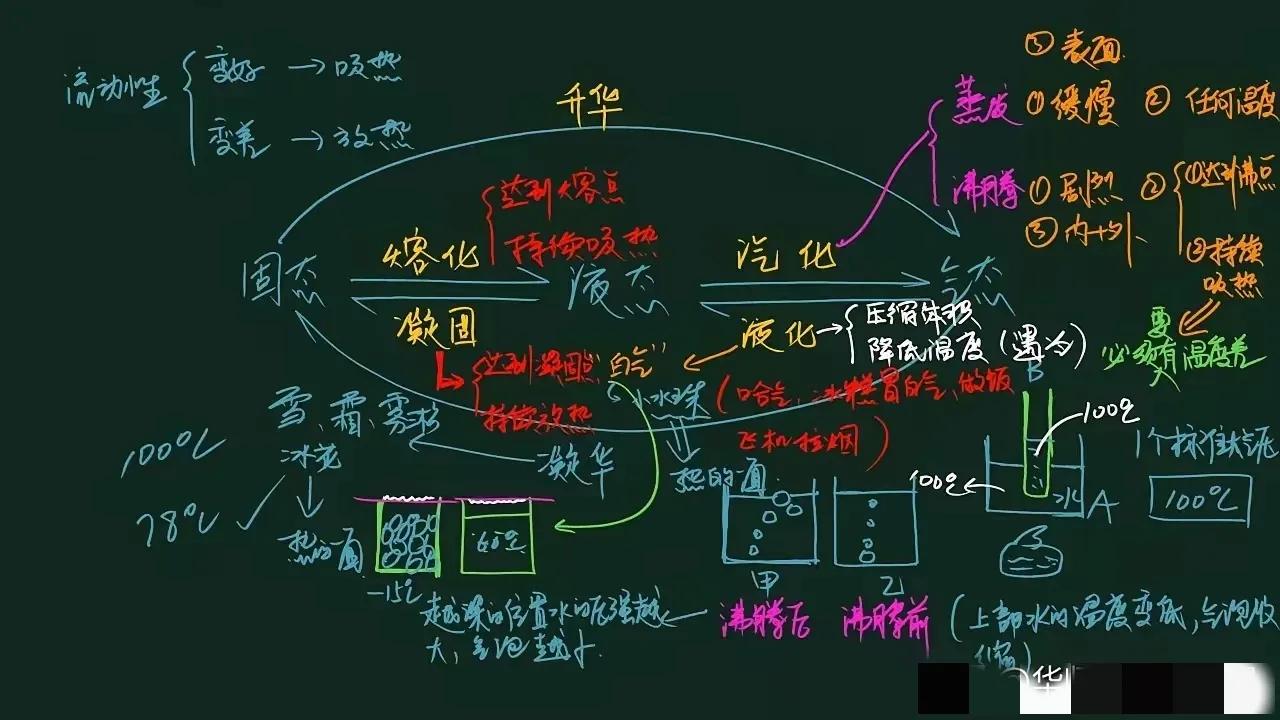 流动性
变好 → 吸热
变差 → 放热
升华
③ 表面
蒸发 ① 缓慢 ② 任何温度
沸腾 ① 剧烈 ② ①达到沸点
③ 内+外
②持续
吸热
要
必须有温度差
达到熔点
持续吸热
固态 熔化 液态 汽化 气态
凝固
液化 → 压缩体积
降低温度(遇冷)
达到凝固点
持续放热
"白气"
小水珠
(口哈气、冰糕冒白气、做饭
飞机拉烟)
热的一面
雪、霜、雾凇
冰花
凝华
热的一面
100℃
78℃
-15℃
60℃
甲
乙
沸腾后
沸腾前
(上部水的温度变低,气泡收
缩)
越深的位置水的压强越
大,气泡越小.
B
100℃
100℃
水
A
1个标准大气压
100℃
华